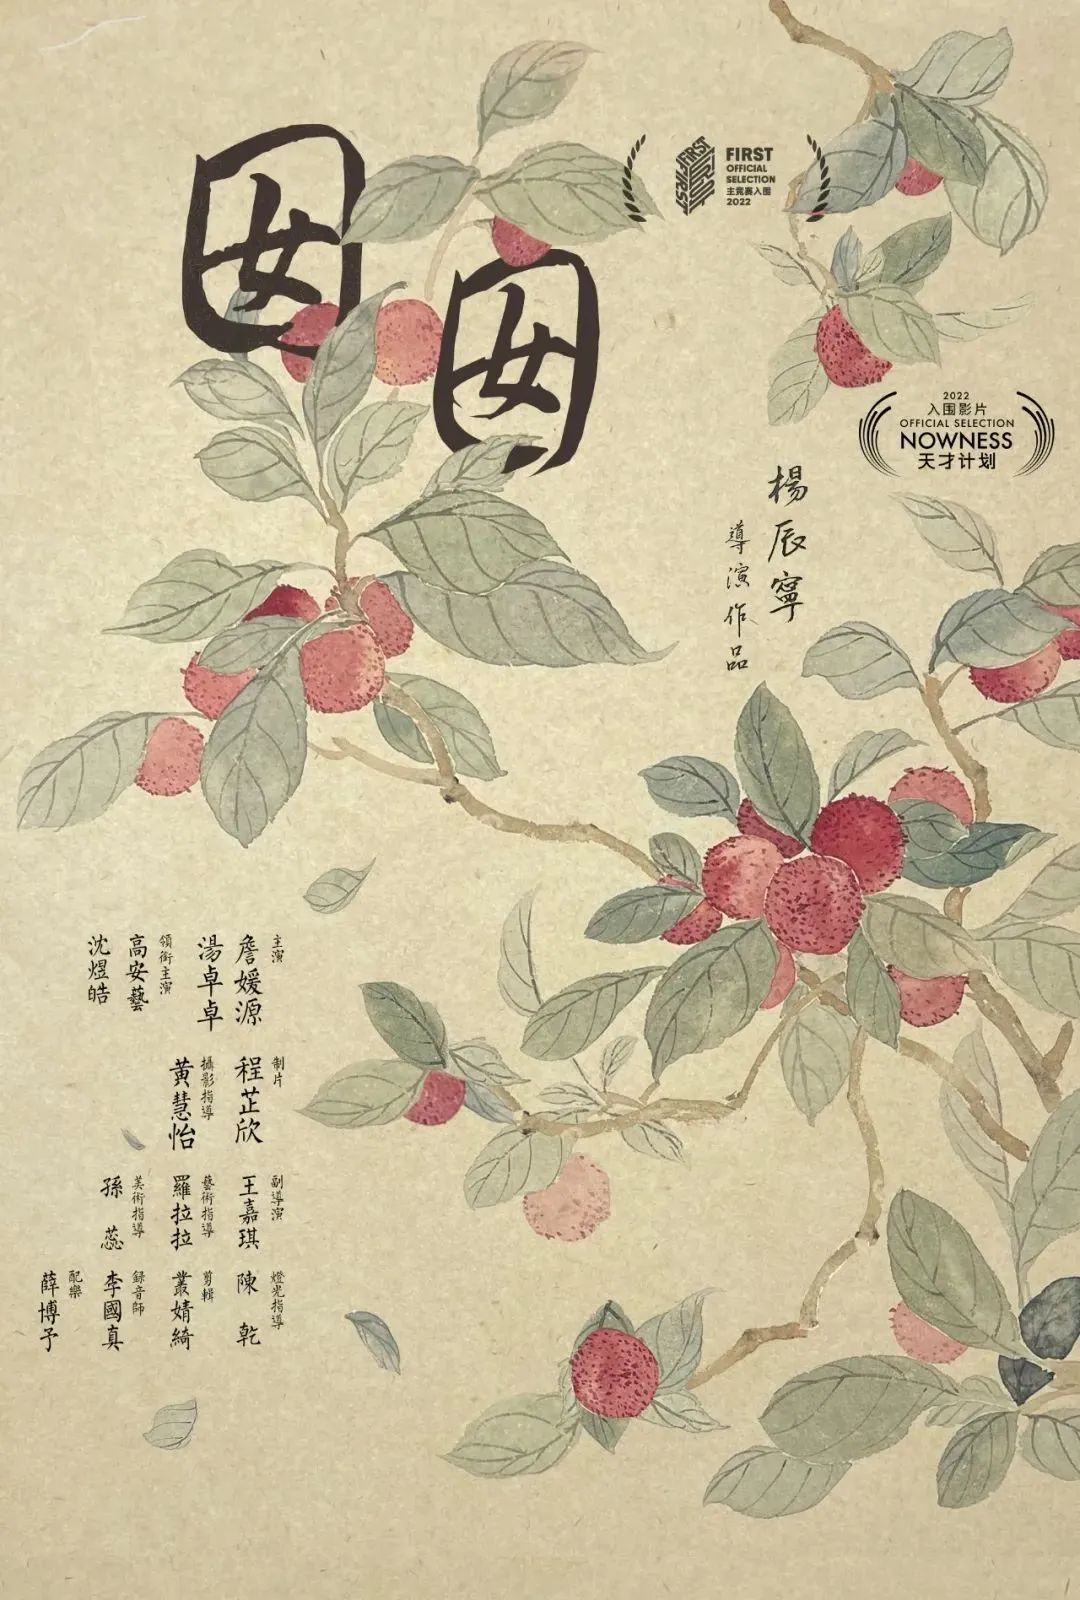 囡囡
FIRST
OFFICIAL
SELECTION
主竞赛入围
2022
2022
入围影片
OFFICIAL SELECTION
NOWNESS
天才计划
楊辰寧
導演作品
主演
詹媛源
湯卓卓
領銜主演
高安藝
沈煜皓
制片
程芷欣
攝影指導
黃慧怡
副導演
王嘉琪
藝術指導
羅拉拉
美術指導
孫蕊
燈光指導
陳乾
剪輯
叢婧綺
録音師
李國真
配樂
薛博予